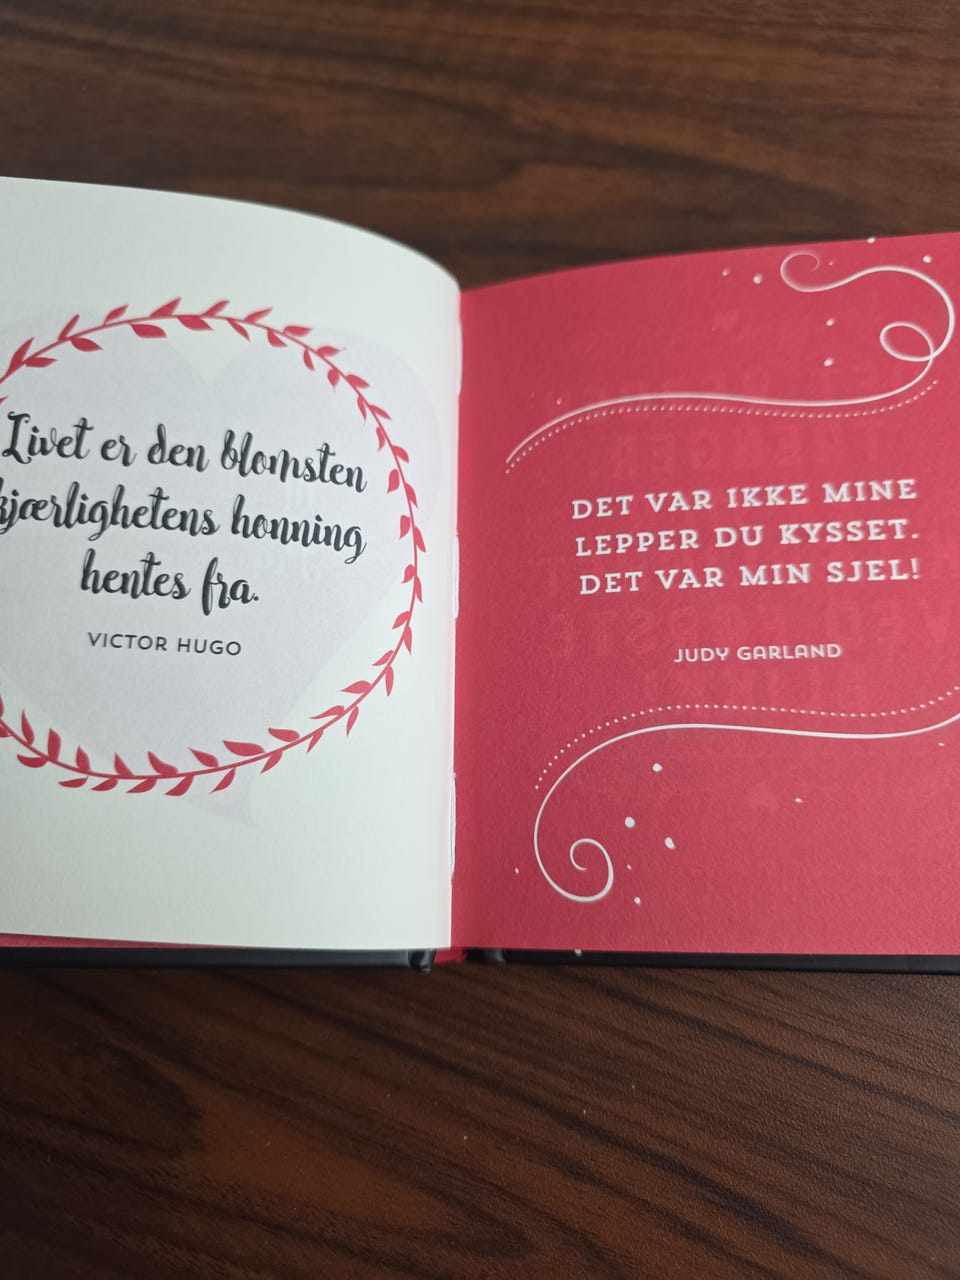 Livet er den blomsten
kjærlighetens honning
hentes fra.
VICTOR HUGO
DET VAR IKKE MINE
LEPPER DU KYSSET.
DET VAR MIN SJEL!
JUDY GARLAND